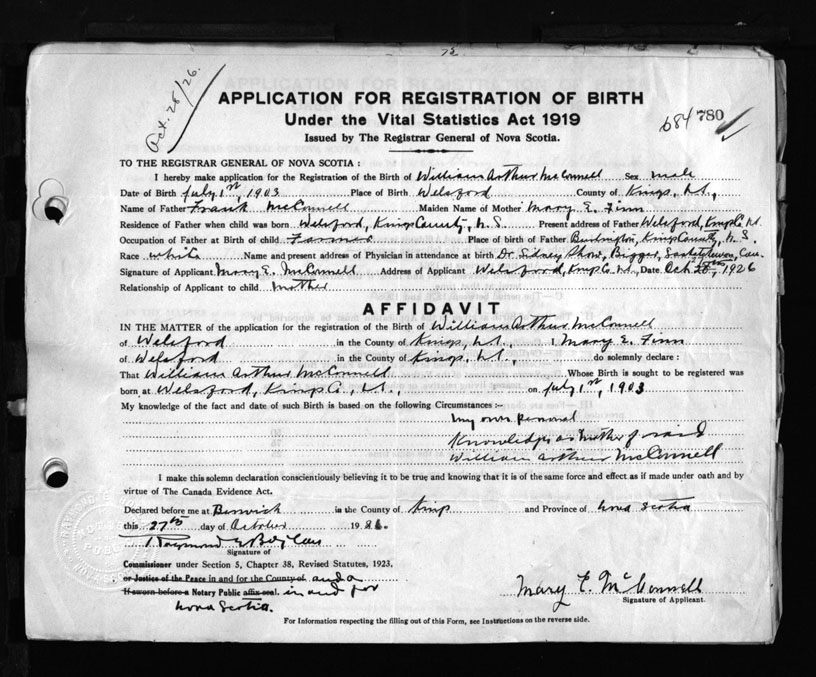 Oct. 28/26.
APPLICATION FOR REGISTRATION OF BIRTH
Under the Vital Statistics Act 1919
684 780
Issued by The Registrar General of Nova Scotia.
TO THE REGISTRAR GENERAL OF NOVA SCOTIA :
I hereby make application for the Registration of the Birth of William Arthur McConnell Sex male
Date of Birth July 1st, 1903 Place of Birth Welsford County of Kings,
Name of Father Frank McConnell Maiden Name of Mother Mary E. Finn
Residence of Father when child was born Welsford, Kings County, N.S. Present address of Father Welsford, Kings Co.
Occupation of Father at Birth of child Farmer Place of birth of Father Burlington, Kings County, N.S.
Race white Name and present address of Physician in attendance at birth Dr. Sidney Biggar, Saskatchewan, Can.
Signature of Applicant Mary E. McConnell Address of Applicant Welsford, Kings Co. Date, Oct 1926
Relationship of Applicant to child mother
AFFIDAVIT
IN THE MATTER of the application for the registration of the Birth of William Arthur McConnell
of Welsford in the County of Kings, I, Mary E. Finn
of Welsford in the County of Kings, do solemnly declare :
That William Arthur McConnell Whose Birth is sought to be registered was
born at Welsford, Kings Co., on July 1st, 1903
My knowledge of the fact and date of such Birth is based on the following Circumstances :-
my own personal
Knowledge as mother of said
William Arthur McConnell
I make this solemn declaration conscientiously believing it to be true and knowing that it is of the same force and effect as if made under oath and by
virtue of The Canada Evidence Act.
Declared before me at Berwick in the County of Kings and Province of Nova Scotia
this 27th day of October 1926.
Signature of
Commissioner under Section 5, Chapter 38, Revised Statutes, 1923.
or Justice of the Peace in and for the County of and a
If sworn before a Notary Public affix seal. in and for
Nova Scotia.
Mary E. McConnell
Signature of Applicant.
For Information respecting the filling out of this Form, see Instructions on the reverse side.